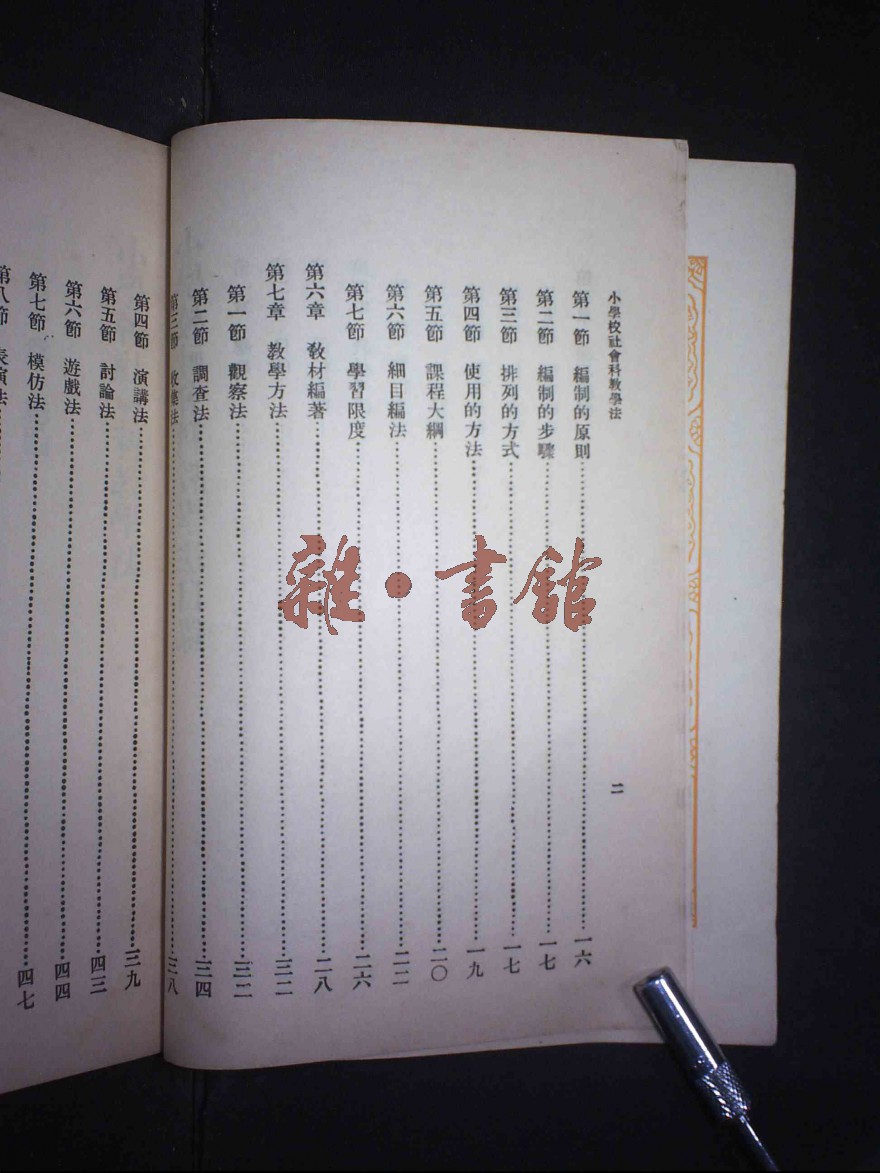 小學校社會科教學法
二
第一節 編制的原則…………一六
第二節 編制的步驟…………一七
第三節 排列的方式…………一七
第四節 使用的方法…………一九
第五節 課程大綱…………二〇
第六節 細目編法…………二二
第七節 學習限度…………二六
第六章 教材編著…………二八
第七章 教學方法…………三二
第一節 觀察法…………三二
第二節 調查法…………三四
第三節 收集法…………三八
第四節 演講法…………三九
第五節 討論法…………四三
第六節 遊戲法…………四四
第七節 模仿法…………四七
第八節 表演法…………
雜·書館